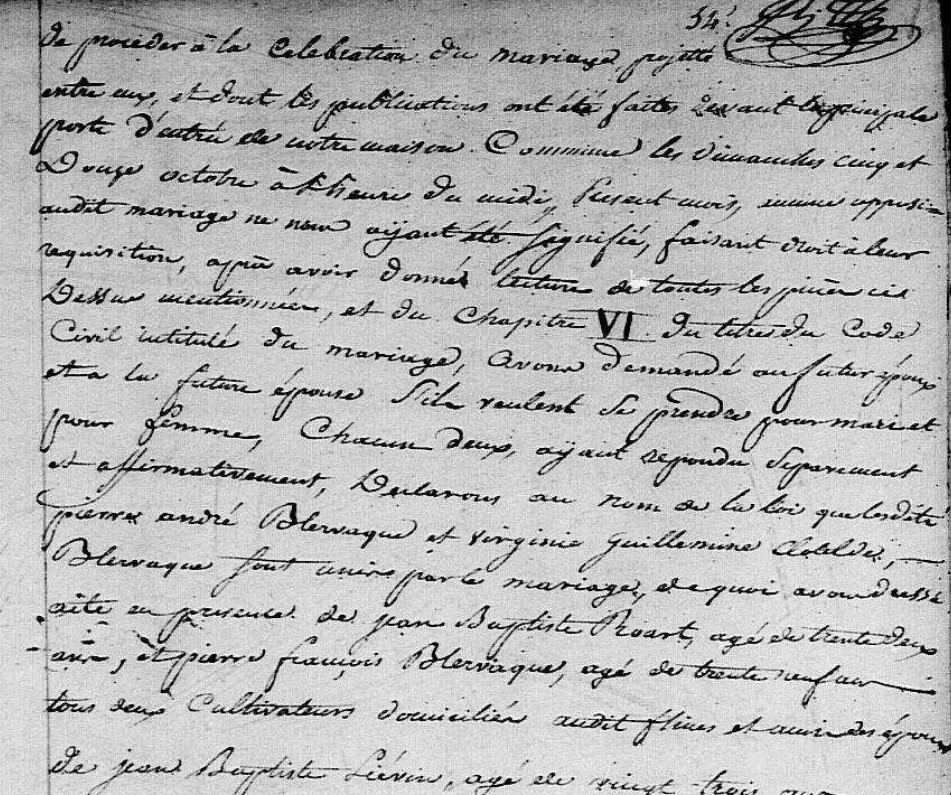 54.e
de proceder à la Celebration du mariage projetté
entre eux, et dont les publications ont été faites devant la principale
porte d'entrée de notre maison Commune les dimanches cinq et
Douze octobre à l'heure du midi, présent mois, aucune opposi-
audit mariage ne nous ayant été signifié, faisant droit à leur
requisition, après avoir donnés lecture de toutes les pièces ci
Dessus mentionnées, et du Chapitre VI du titre du Code
Civil intitulé du mariage, avons demandé au futur époux
et a la future épouse S'ils veulent se prendre pour mari et
pour femme, Chacun deux, ayant repondu Separement
et affirmativement, Declarons au nom de la loi que lesdits
pierre andré Blervaque et virginie guillemine Clotilde,
Blervaque sont unis par le mariage, de quoi avons dressé
acte en presence de jean Baptiste Roart, agé de trente deux
ans, et pierre françois Blervaque, agé de trente neuf ans
tous deux Cultivateurs domiciliés audit flines et amis des époux
de jean Baptiste Liévin, agé de vingt trois ans